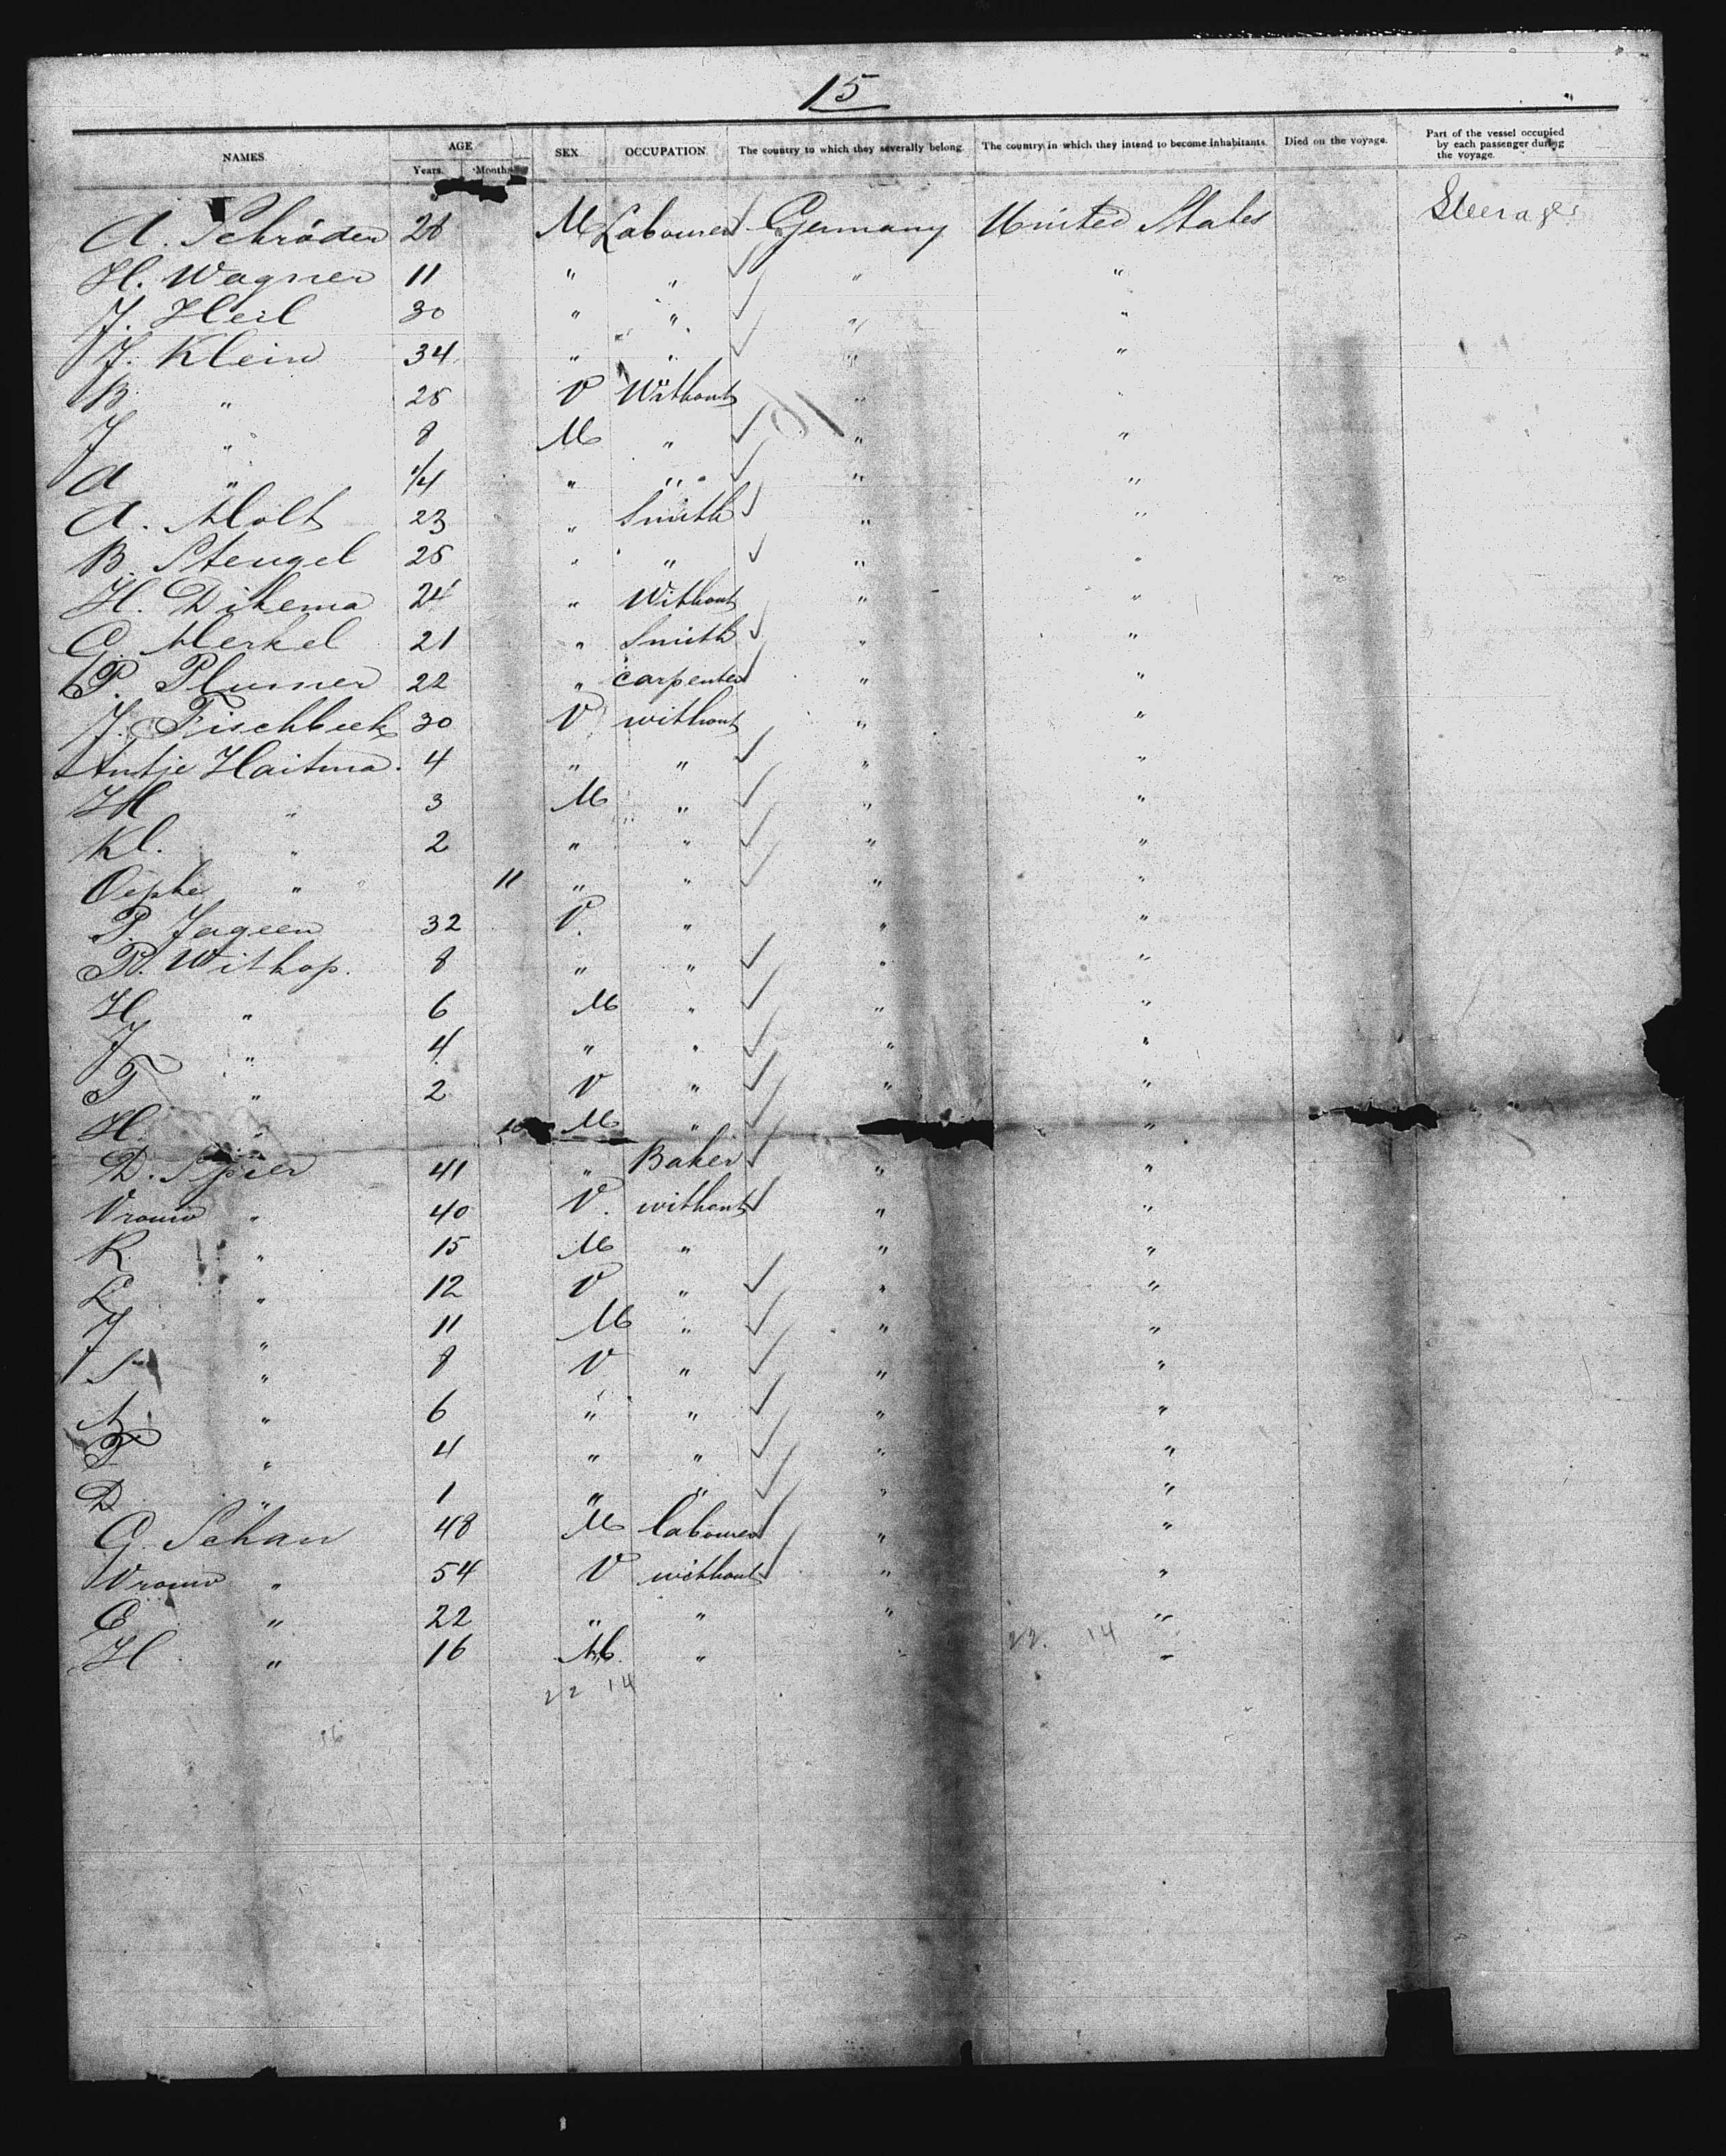 15
NAMES. AGE Years. Months. SEX OCCUPATION. The country to which they severally belong. The country in which they intend to become inhabitants. Died on the voyage. Part of the vessel occupied by each passenger during the voyage.
A. Schröder 28 M Labourer Germany United States Steerage
H. Wagner 11 " " " "
J. Heil 30 " " " "
J. Klein 34 " " " "
B. " 28 V Without " "
J " 8 M " " "
A " 1/4 " " " "
A. Molt 23 " Smith " "
B. Stengel 28 " " " "
H. Dikema 24 " Without " "
C. Merkel 21 " Smith " "
P. Plumer 22 " carpenter " "
J. Fischbeek 30 V without " "
Antje Haitma. 4 " " " "
H " 3 M " " "
Kl. " 2 " " " "
" 11 " " " "
P. Jageen 32 V. " " "
R. Withop. 8 " " " "
H " 6 M " " "
J " 4 " " " "
T " 2 V " " "
H. " 10 M " "
D. Spier 41 " Baker " "
Vrouw " 40 V. without " "
R. " 15 M " " "
L " 12 V " " "
J " 11 M " " "
S " 8 V " " "
A " 6 " " " "
T " 4 " " " "
D " 1 " " " "
G. Schan 48 M labourer " "
Vrouw " 54 V without " "
E " 22 " " " "
H " 16 M. " " "
22. 14
22 14
36